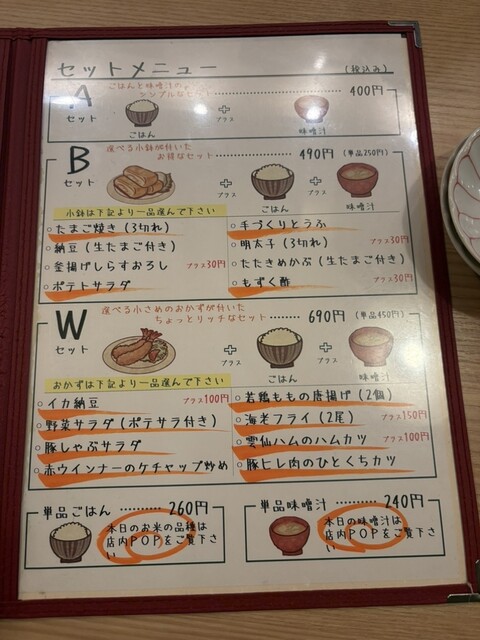 セットメニュー (税込み)
A セット
ごはんと味噌汁の
シンプルなセット 400円
ごはん + プラス 味噌汁
B セット
選べる小鉢が付いた
お得なセット 490円 (単品250円)
+ プラス ごはん + プラス 味噌汁
小鉢は下記より一品選んで下さい
○たまご焼き(3切れ)
○納豆(生たまご付き)
○釜揚げしらすおろし プラス30円
○ポテトサラダ
○手づくりとうふ
○明太子(3切れ) プラス30円
○たたきめかぶ(生たまご付き)
○もずく酢 プラス30円
W セット
選べる小さめのおかずが付いた
ちょっとリッチなセット 690円 (単品450円)
+ プラス ごはん + プラス 味噌汁
おかずは下記より一品選んで下さい
○イカ納豆 プラス100円
○野菜サラダ(ポテサラ付き)
○豚しゃぶサラダ
○赤ウインナーのケチャップ炒め
○若鶏ももの唐揚げ(2個)
○海老フライ(2尾) プラス150円
○雲仙ハムのハムカツ プラス100円
○豚ヒレ肉のひとくちカツ
単品ごはん 260円
本日のお米の品種は
店内POPをご覧下さ
い
単品味噌汁 240円
本日の味噌汁は
店内POPをご覧下さ
い